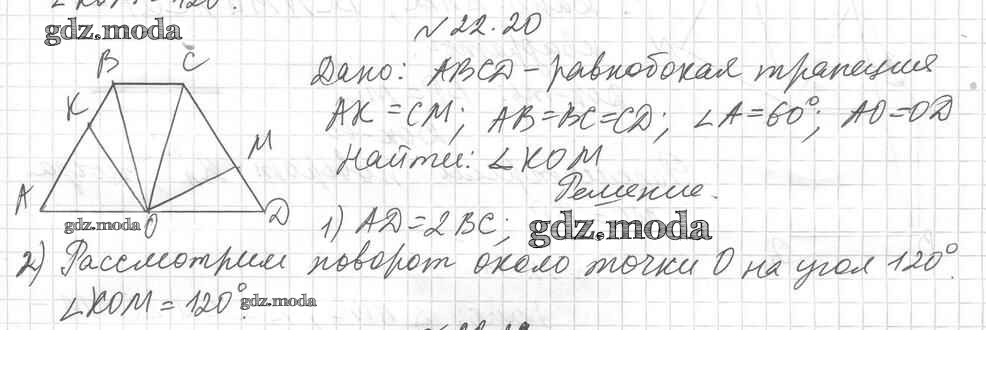 gdz.moda
№22.20
Дано: ABCD – равнобокая трапеция
AK = CM; AB=BC=CD; ∠A=60°; AO=OD
Найти: ∠KOM
Решение.
1) AD=2BC;
gdz.moda
2) Рассмотрим поворот около точки O на угол 120°.
∠KOM = 120°.
gdz.moda
B C
K
M
A
O
D
gdz.moda